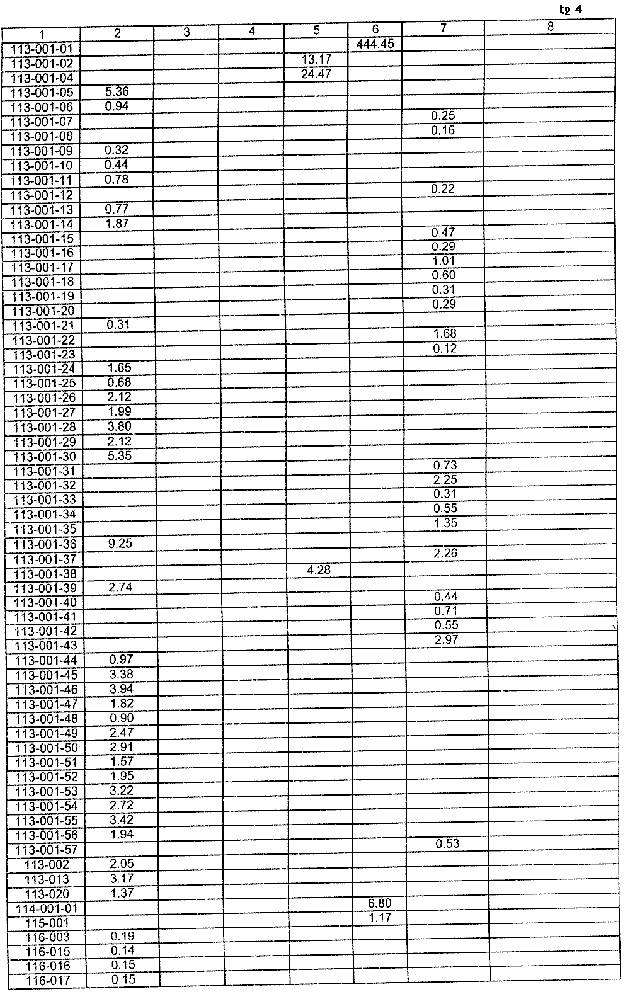 էջ 4
1 2 3 4 5 6 7 8
113-001-01 444.45
113-001-02 13.17
113-001-04 24.47
113-001-05 5.36
113-001-06 0.94
113-001-07 0.25
113-001-08 0.16
113-001-09 0.32
113-001-10 0.44
113-001-11 0.78
113-001-12 0.22
113-001-13 0.77
113-001-14 1.87
113-001-15 0.47
113-001-16 0.29
113-001-17 1.01
113-001-18 0.60
113-001-19 0.31
113-001-20 0.29
113-001-21 0.31
113-001-22 1.68
113-001-23 0.12
113-001-24 1.65
113-001-25 0.68
113-001-26 2.12
113-001-27 1.99
113-001-28 3.80
113-001-29 2.12
113-001-30 5.35
113-001-31 0.73
113-001-32 2.25
113-001-33 0.31
113-001-34 0.55
113-001-35 1.35
113-001-36 9.25
113-001-37 2.26
113-001-38 4.28
113-001-39 2.74
113-001-40 0.44
113-001-41 0.71
113-001-42 0.55
113-001-43 2.97
113-001-44 0.97
113-001-45 3.38
113-001-46 3.94
113-001-47 1.82
113-001-48 0.90
113-001-49 2.47
113-001-50 2.91
113-001-51 1.57
113-001-52 1.95
113-001-53 3.22
113-001-54 2.72
113-001-55 3.42
113-001-56 1.94
113-001-57 0.53
113-002 2.05
113-013 3.17
113-020 1.37
114-001-01 6.80
115-001 1.17
116-003 0.19
116-015 0.14
116-016 0.15
116-017 0.15